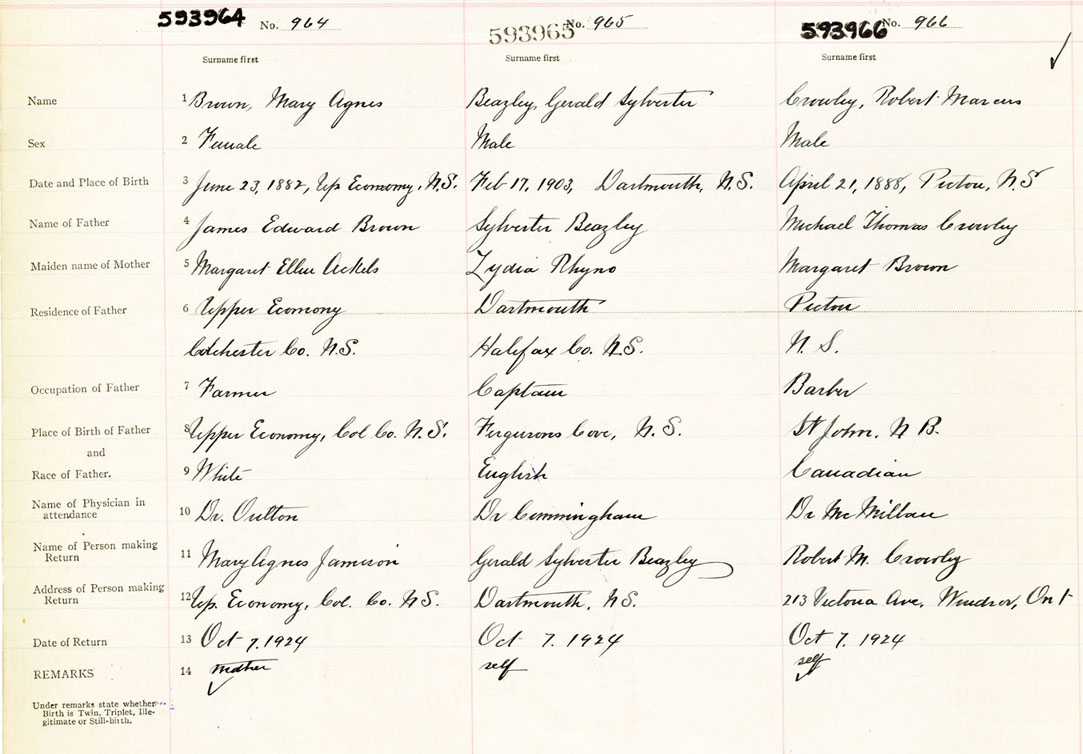 593964 No. 964 593965 No. 965 593966 No. 966
Surname first Surname first Surname first
Name 1 Brown, Mary Agnes Beazley, Gerald Sylvester Crowley, Robert Marcus
Sex 2 Female Male Male
Date and Place of Birth 3 June 23, 1882, Up Economy, N.S. Feb 17, 1903, Dartmouth, N.S. April 21, 1888, Pictou, N.S
Name of Father 4 James Edward Brown Sylvester Beazley Michael Thomas Crowley
Maiden name of Mother 5 Margaret Ellen Ackels Lydia Rhyno Margaret Brown
Residence of Father 6 Upper Economy Dartmouth Pictou
Colchester Co. N.S. Halifax Co. N.S. N. S.
Occupation of Father 7 Farmer Captain Barber
Place of Birth of Father 8 Upper Economy, Col Co. N.S. Fergusons Cove, N. S. St John, N B.
and
Race of Father. 9 White English Canadian
Name of Physician in
attendance 10 Dr. Oulton Dr Cunningham Dr McMillan
Name of Person making
Return 11 Mary Agnes Jameson Gerald Sylvester Beazley Robert M. Crowley
Address of Person making
Return 12 Up. Economy, Col. Co. N.S. Dartmouth, N.S. 213 Victoria Ave, Windsor, Ont
Date of Return 13 Oct 7, 1924 Oct 7. 1924 Oct 7. 1924
REMARKS 14 mother self self
Under remarks state whether
Birth is Twin, Triplet, Ille-
gitimate or Still-birth.